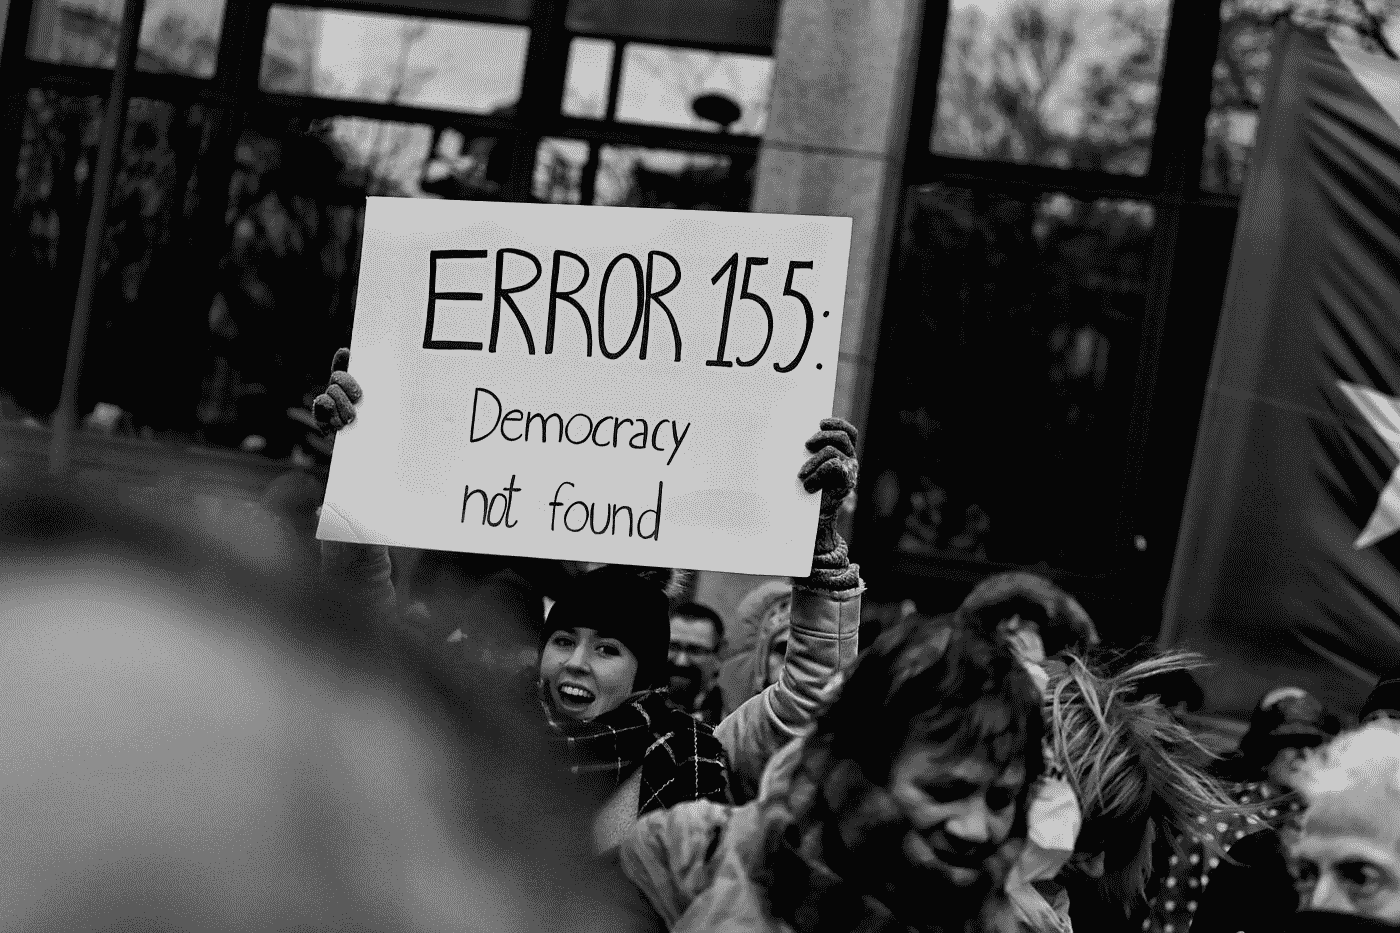 ERROR 155:
Democracy
not found